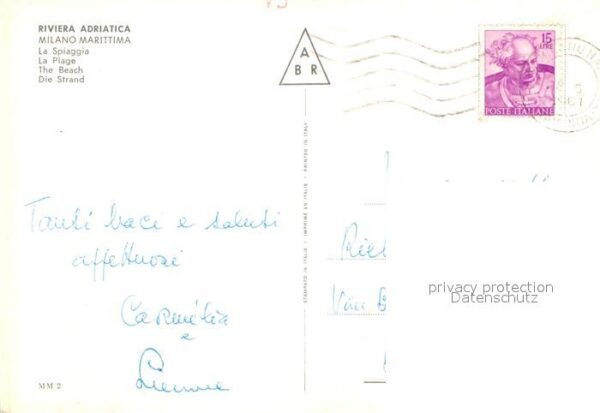 RIVIERA ADRIATICA
MILANO MARITTIMA
La Spiaggia
La Plage
The Beach
Die Strand
A
B R
15
LIRE
POSTE ITALIANE
STAMPATO IN ITALIE • IMPRIMÉ EN ITALIE • PRINTED IN ITALY
Tanti baci e saluti
affettuosi
Carmélia
e
MM 2
privacy protection
Datenschutz